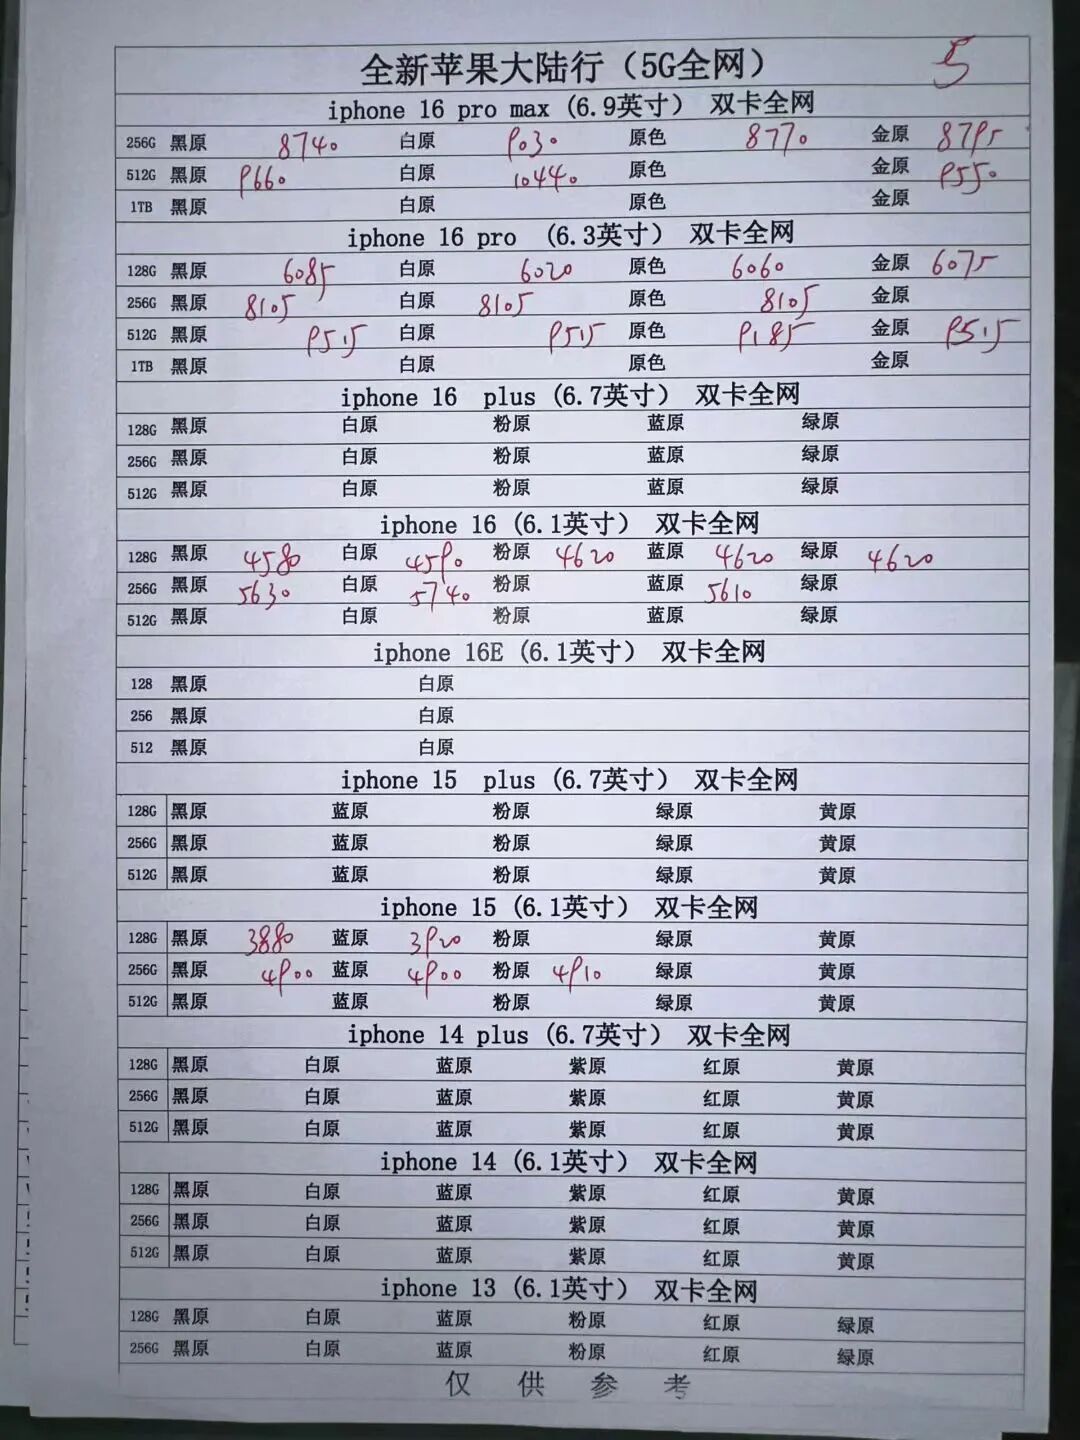 全新苹果大陆行（5G全网） 5
iphone 16 pro max (6.9英寸） 双卡全网
256G 黑原 8740 白原 9030 原色 8770 金原 8795
512G 黑原 9660 白原 10440 原色 金原 9550
1TB 黑原 白原 原色 金原
iphone 16 pro （6.3英寸） 双卡全网
128G 黑原 6085 白原 6020 原色 6060 金原 6075
256G 黑原 8105 白原 8105 原色 8105 金原
512G 黑原 9515 白原 9515 原色 9185 金原 9515
1TB 黑原 白原 原色 金原
iphone 16 plus (6.7英寸） 双卡全网
128G 黑原 白原 粉原 蓝原 绿原
256G 黑原 白原 粉原 蓝原 绿原
512G 黑原 白原 粉原 蓝原 绿原
iphone 16 (6.1英寸） 双卡全网
128G 黑原 4580 白原 4590 粉原 4620 蓝原 4620 绿原 4620
256G 黑原 5630 白原 5740 粉原 蓝原 5610 绿原
512G 黑原 白原 粉原 蓝原 绿原
iphone 16E (6.1英寸） 双卡全网
128 黑原 白原
256 黑原 白原
512 黑原 白原
iphone 15 plus (6.7英寸） 双卡全网
128G 黑原 蓝原 粉原 绿原 黄原
256G 黑原 蓝原 粉原 绿原 黄原
512G 黑原 蓝原 粉原 绿原 黄原
iphone 15 (6.1英寸） 双卡全网
128G 黑原 3880 蓝原 3920 粉原 绿原 黄原
256G 黑原 4900 蓝原 4900 粉原 4910 绿原 黄原
512G 黑原 蓝原 粉原 绿原 黄原
iphone 14 plus (6.7英寸） 双卡全网
128G 黑原 白原 蓝原 紫原 红原 黄原
256G 黑原 白原 蓝原 紫原 红原 黄原
512G 黑原 白原 蓝原 紫原 红原 黄原
iphone 14 (6.1英寸） 双卡全网
128G 黑原 白原 蓝原 紫原 红原 黄原
256G 黑原 白原 蓝原 紫原 红原 黄原
512G 黑原 白原 蓝原 紫原 红原 黄原
iphone 13 (6.1英寸） 双卡全网
128G 黑原 白原 蓝原 粉原 红原 绿原
256G 黑原 白原 蓝原 粉原 红原 绿原
仅 供 参 考